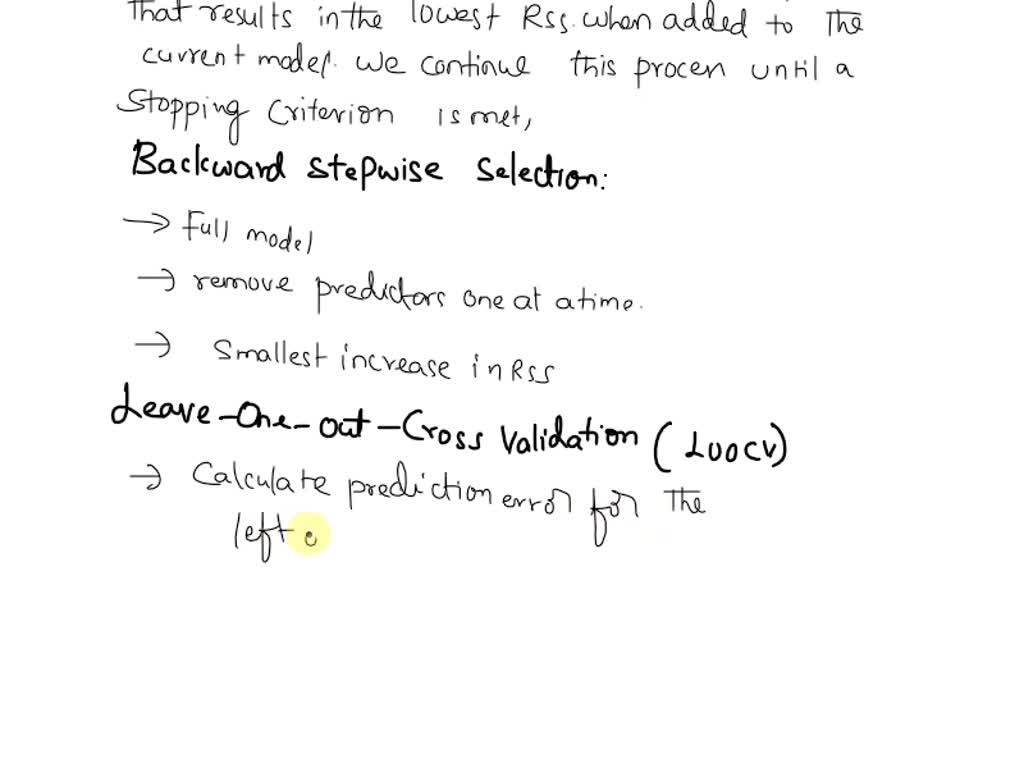 That results in the lowest Rss. when added to the
current model. we continue this procen until a
Stopping Criterion is met,
Backward stepwise selection:
→ Full model
→ remove predictors one at a time.
→ Smallest increase in Rss
Leave-One-out-Cross Validation (LOOCV)
→ Calculate prediction error for the
left o